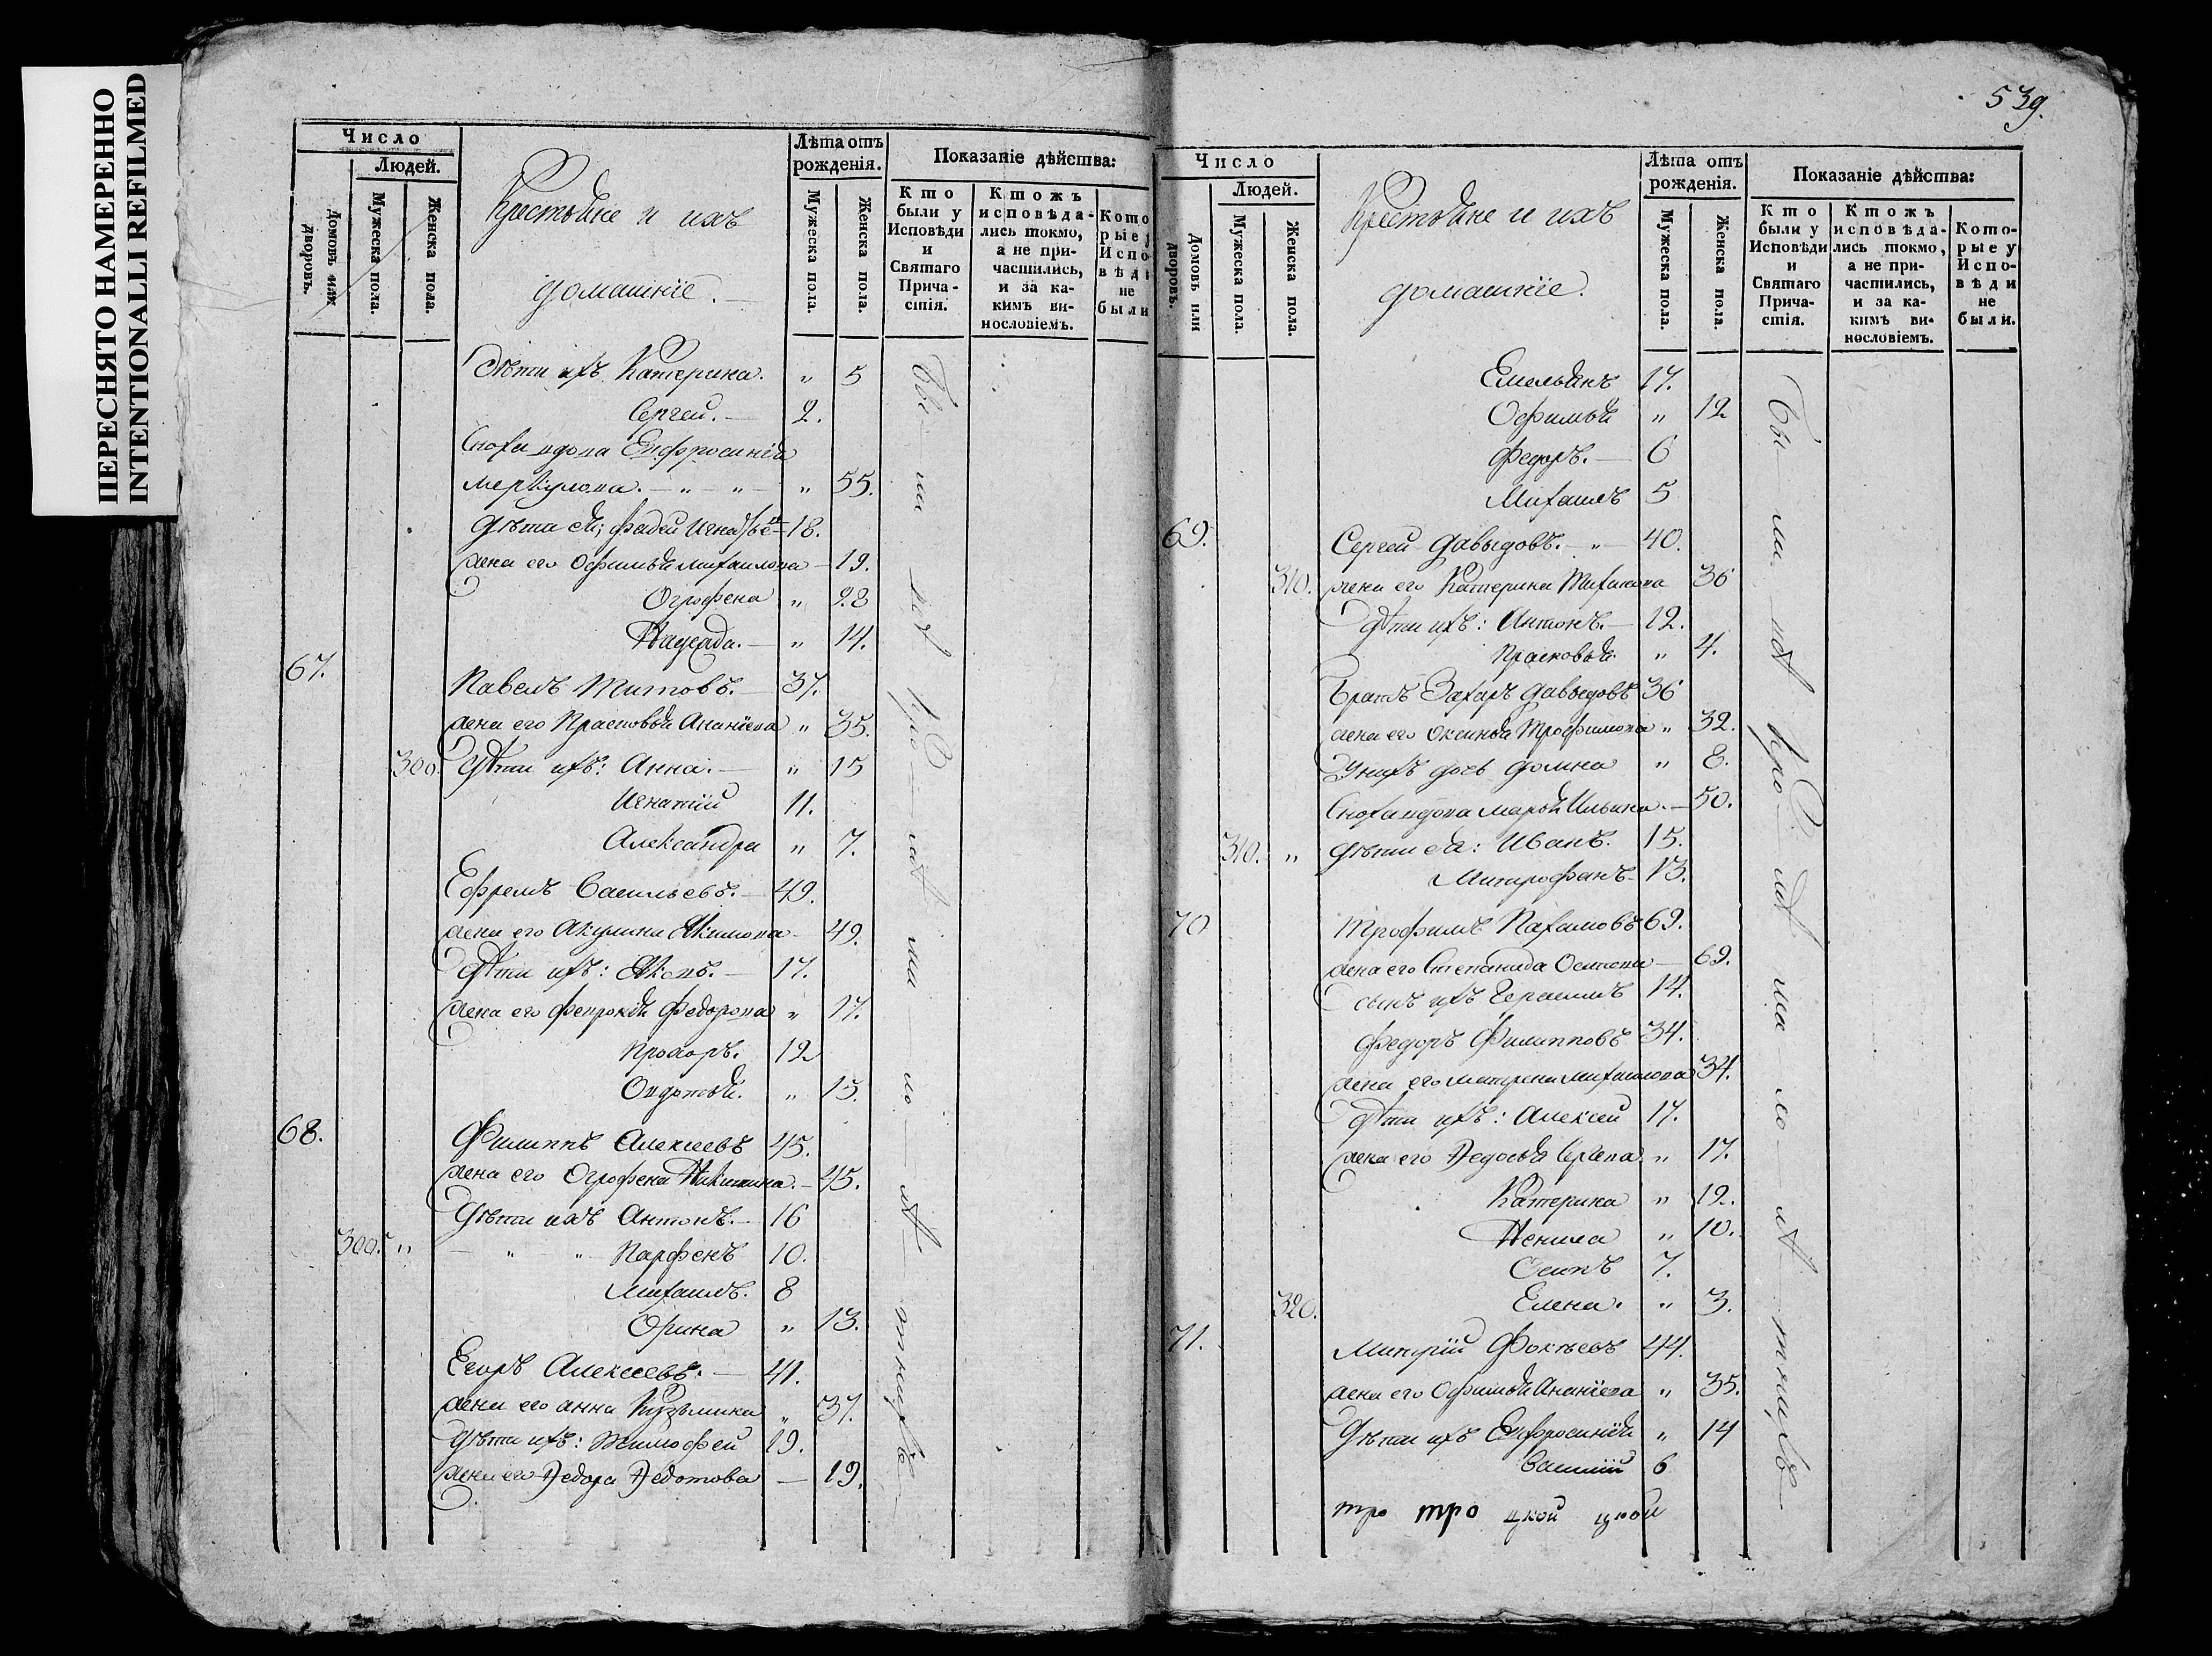 ПЕРЕСНЯТО НАМЕРЕННО
INTENTIONALLI REFILMED
Число
Людей.
Домовъ или дворовъ.
Мужеска пола.
Женска пола.
Крестьяне и ихъ
домашніе.
Лѣта отъ рожденія.
Мужеска пола.
Женска пола.
Показаніе дѣйства:
Кто были у Исповѣди и Святаго Причастія.
Ктожъ исповѣдались токмо, а не причастились, и за какимъ винословіемъ.
Которые у Исповѣди не были
Дѣти ихъ Катерина. „ 5
Сергей. — 2.
Сноха вдова Евфросинія
Меркулова. — „ — „ — „ 55.
Дѣти ея; Фадей Игнатьевъ 18.
жена его Офимья Михаилова — 19.
Огрофена „ 28
Надежда. — „ 14.
67. Павелъ Титовъ. — 37.
жена его Прасковья Ананіева „ 35.
300. Дѣти ихъ: Анна. — „ 15
Игнатій 11.
Александра „ 7.
Ефремъ Васильевъ. — 49.
жена его Акулина Якимова — 49.
Дѣти ихъ: Яковъ. — 17.
жена его Феврония Федорова „ 17.
Прохоръ. 12
Овдотья. „ 15.
68. Филиппъ Алексеевъ 45.
жена его Огрофена Никитина. — 45.
Дѣти ихъ Антонъ. — 16
300. „ — „ „ Парфенъ 10.
Михаилъ. 8
Орина „ 13.
Егоръ Алексеевъ. — 41.
жена его Анна Кузьмина „ 37.
Дѣти ихъ: Тимофей 19.
жена его Федора Федотова — 19.
539.
Число
Людей.
Домовъ или дворовъ.
Мужеска пола.
Женска пола.
Крестьяне и ихъ
домашніе.
Лѣта отъ рожденія.
Мужеска пола.
Женска пола.
Показаніе дѣйства:
Кто были у Исповѣди и Святаго Причастія.
Ктожъ исповѣдались токмо, а не причастились, и за какимъ винословіемъ.
Которые у Исповѣди не были.
Емельянъ 17.
Офимья „ 12
Федоръ. — 6
Михаилъ 5
69. Сергей Давыдовъ. — „ — 40.
310. жена его Катерина Михаилова 36
Дѣти ихъ: Антонъ. — 12.
Прасковья „ 4.
Братъ Захаръ Давыдовъ 36
жена его Оксинья Трофимова „ 32.
У нихъ дочь Домна „ 8.
Сноха вдова Марья Ильина. — 50.
310. „ Дѣти ея: Иванъ. 15.
Митрофанъ — 13.
70 Трофимъ Пахамовъ 69.
жена его Степанида Осипова — 69.
сынъ ихъ Герасимъ 14.
Федоръ Филипповъ 34.
жена его Матрена Михаилова 34.
Дѣти ихъ: Алексей 17.
жена его Федосья „ 17.
Катерина „ 12.
Ненила „ 10.
Осипъ 7.
320. Елена. „ 3.
71. Митрій Фокѣевъ 44.
жена его Офимья Ананіева „ 35.
Дѣти ихъ Евфросинія „ 14
Василій 6
тро тро цкой цкой